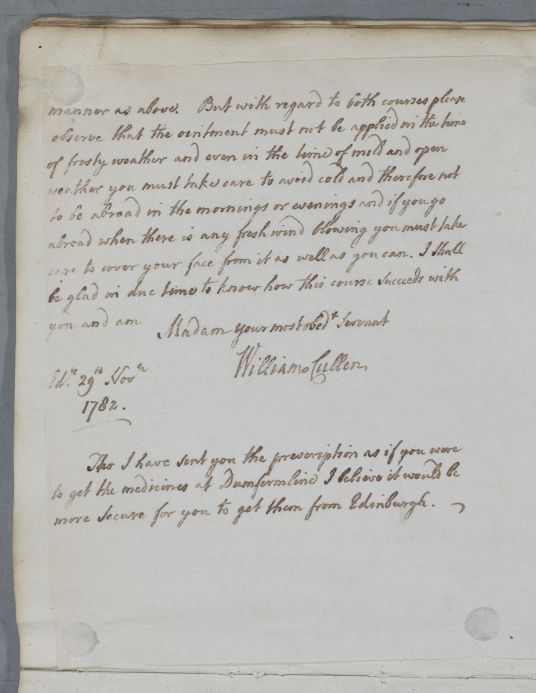 manner as above. But with regard to both courses please
observe that the ointment must not be applied in the time
of frosty weather and even in the time of mild and open
weather you must take care to avoid cold and therefore not
to be abroad in the mornings or evenings and if you go
abroad when there is any fresh wind blowing you must take
care to cover your face from it as well as you can. I shall
be glad in due time to know how this course succeeds with
you and am
Madam your most obed.t Servant
William Cullen
Ed.r 29th Nov.r
1782.
Tho I have sent you the prescription as if you were
to get the medicines at Dumfermline I believe it would be
more secure for you to get them from Edinburgh.